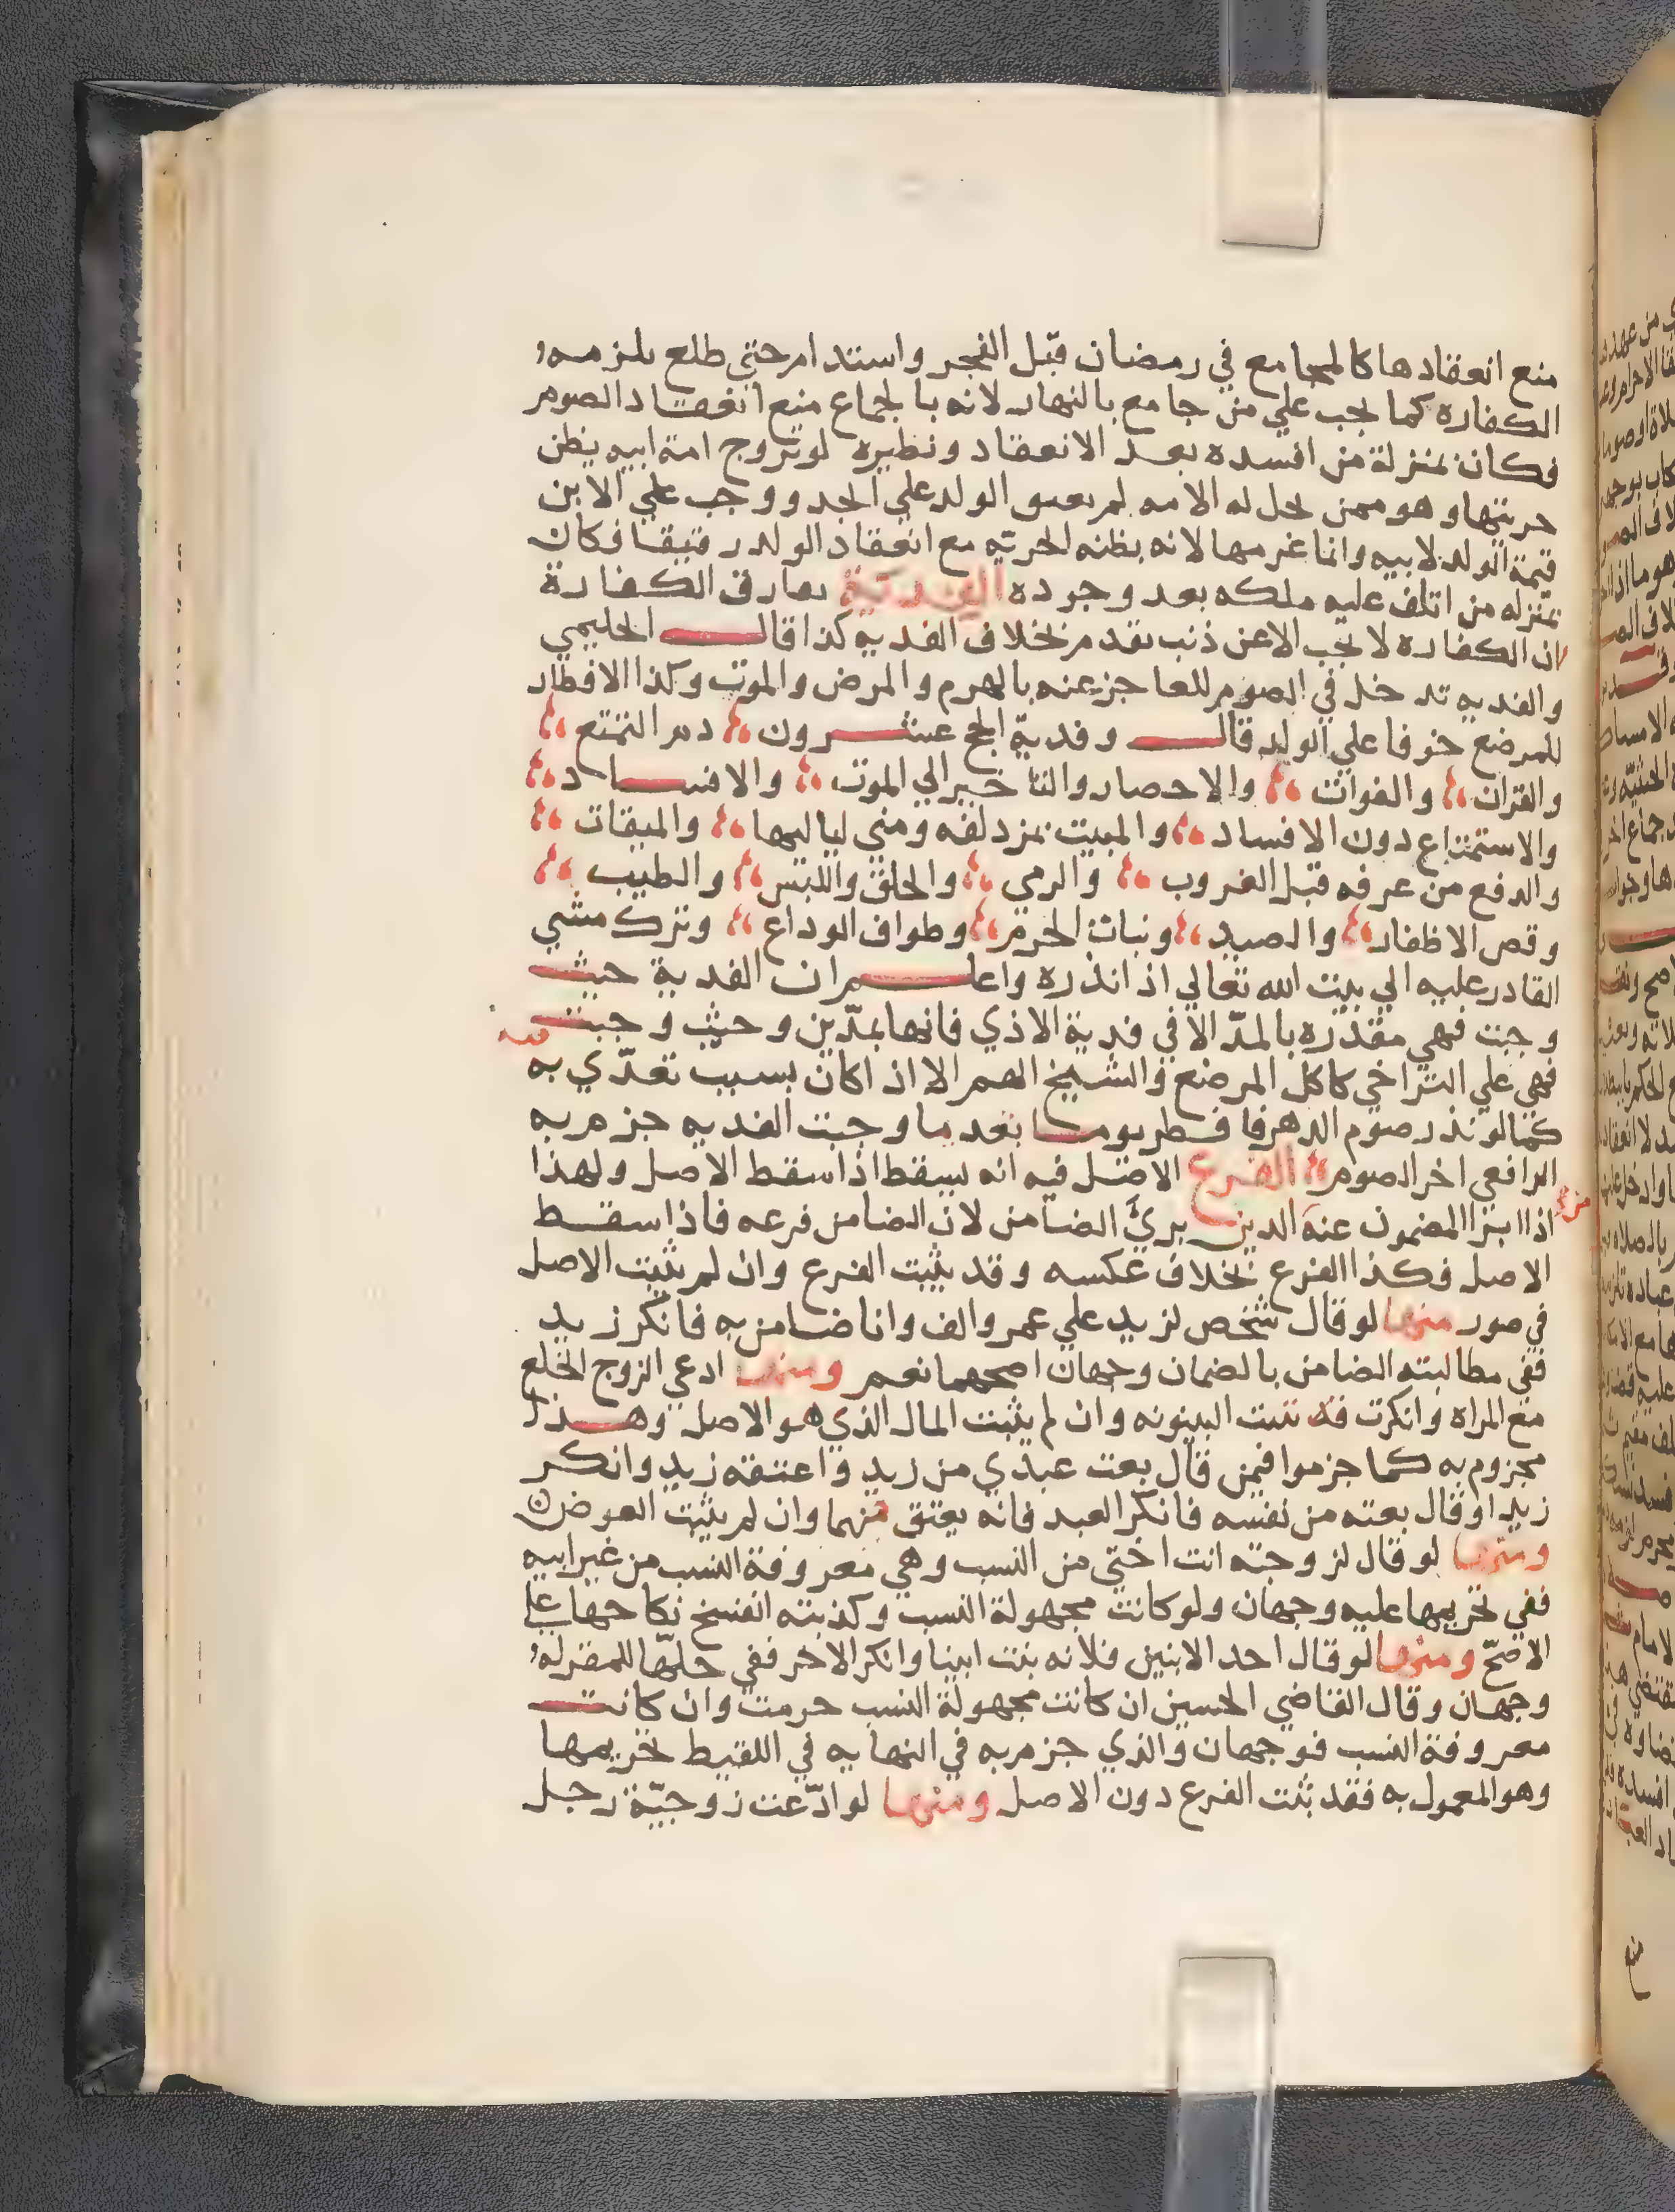 منع انعقادها كالمجامع في رمضان قبل الفجر واستدام حتي طلع يلزمه
الكفاره كما يجب علي من جامع بالنهار لانه بالجماع منع انعقاد الصوم
فكان بمنزلة من افسده بعد الانعقاد ونظيره لو تزوج امة ابيه يظن
حريتها وهو ممن يحل له الامه لم يعتق الولد علي الجد ووجب علي الابن
قيمة الولد لابيه وانما غرمها لانه بظنه الحريه مع انعقاد الولد رقيقا فكان
بمنزله من اتلف عليه ملكه بعد وجوده الفدية يفارق الكفارة
ان الكفاره لا يجب الا عن ذنب تقدم بخلاف الفديه كذا قال الحليمي
والفديه تدخل في الصوم للعاجز عنه بالهرم والمرض والموت وكذا الافطار
للمرضع خوفا علي الولد قال وفدية الحج عشرون دم التمتع
والقران والفوات والاحصار والتاخير الي الموت والافساد
والاستمتاع دون الافساد والمبيت بمزدلفه ومني لياليها والميقات
والدفع من عرفه قبل الغروب والرمي والحلق واللبس والطيب
وقص الاظفار والصيد ونبات الحرم وطواف الوداع وترك مشي
القادر عليه الي بيت الله تعالي اذا نذره واعلم ان الفدية حيث
وجبت فهي مقدره بالمد الا في فدية الاذي فانها بمدين وحيث وجبت
فهي علي التراخي كاكل المرضع والشيخ الهم الا اذا كان بسبب تعدي به
كما لو نذر صوم الدهر فافطر يوما تعديا وجبت الفديه جزم به
الرافعي اخر الصوم الفرع الاصل فيه انه يسقط اذا سقط الاصل ولهذا
اذا ابرا المضمون عنه الدين بريء الضامن لان الضامن فرعه فاذا سقط
الاصل فكذا الفرع بخلاف عكسه وقد يثبت الفرع وان لم يثبت الاصل
في صور منها لو قال شخص لزيد علي عمرو الف وانا ضامن به فانكر زيد
ففي مطالبته الضامن بالضمان وجهان اصحهما نعم ومنها ادعي الزوج الخلع
مع المراه وانكرت فه تثبت البينونه وان لم يثبت المال الذي هو الاصل وهذا
مجزوم به كما جزموا فيمن قال بعت عبدي من زيد واعتقه زيد وانكر
زيد او قال بعته من نفسه فانكر العبد فانه يعتق فيهما وان لم يثبت العوض
ومنها لو قال لزوجته انت اختي من النسب وهي معروفة النسب من غير ابيه
ففي تحريمها عليه وجهان ولو كانت مجهولة النسب وكذبته انفسخ نكاحها علي
الاصح ومنها لو قال احد الابنين فلانه بنت ابينا وانكر الاخر ففي حلها للمقر له
وجهان وقال القاضي الحسين ان كانت مجهولة النسب حرمت وان كانت
معروفة النسب فوجهان والذي جزم به في النهايه في اللقيط تحريمها
وهو المعمول به فقد ثبت الفرع دون الاصل ومنها لو ادعت زوجية رجل